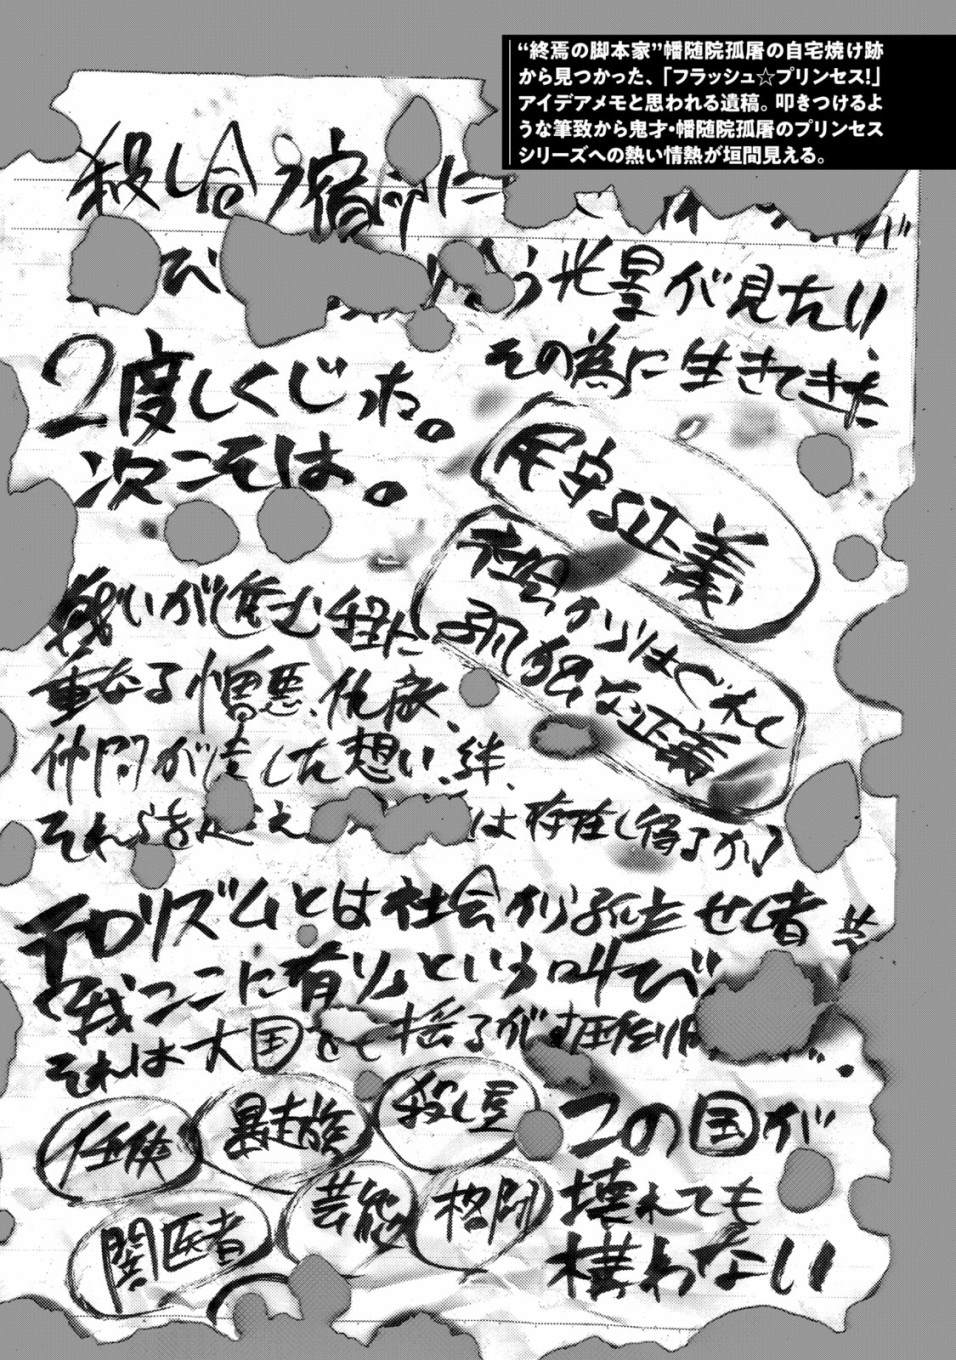 “終焉の脚本家”幡随院孤屠の自宅焼け跡
から見つかった、「フラッシュ☆プリンセス!」
アイデアメモと思われる遺稿。叩きつけるよ
うな筆致から鬼才・幡随院孤屠のプリンセス
シリーズへの熱い情熱が垣間見える。
殺し合う宿命に
が
び う光景が見たい
その為に生きてきた
2度しくじった。
次こそは。
尽守る正義
社会からはぐれし
孤独な正義
戦いが進む程に
重なる憎悪、仇敵、
仲間が遺した想い、絆、
それらを超え は存在し得るか?
テロリズムとは社会から孤立せし者共
「我ここに有り」という叫び
それは大国をも揺るがす圧倒
任侠
暴走族
殺し屋
闇医者
芸能
格闘
この国が
壊れても
構わない